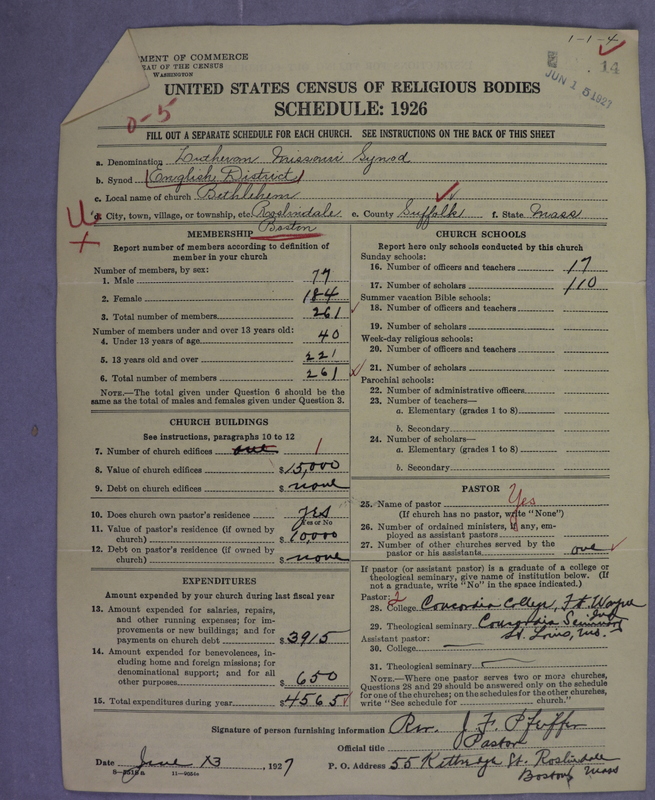 1-1-4
14
JUN 15 1927
MENT OF COMMERCE
EAU OF THE CENSUS
WASHINGTON
UNITED STATES CENSUS OF RELIGIOUS BODIES
SCHEDULE: 1926
0-5
FILL OUT A SEPARATE SCHEDULE FOR EACH CHURCH. SEE INSTRUCTIONS ON THE BACK OF THIS SHEET
a. Denomination Lutheran Missouri Synod
b. Synod (English District)
c. Local name of church Bethlehem
d. City, town, village, or township, etc. Roslindale e. County Suffolk f. State Mass
Boston
MEMBERSHIP
Report number of members according to definition of
member in your church
Number of members, by sex:
1. Male 77
2. Female 184
3. Total number of members 261
Number of members under and over 13 years old:
4. Under 13 years of age 40
5. 13 years old and over 221
6. Total number of members 261
NOTE.—The total given under Question 6 should be the
same as the total of males and females given under Question 3.
CHURCH BUILDINGS
See instructions, paragraphs 10 to 12
7. Number of church edifices one 1
8. Value of church edifices $15,000
9. Debt on church edifices $ none
10. Does church own pastor's residence? yes
Yes or No
11. Value of pastor's residence (if owned by
church) $10,000
12. Debt on pastor's residence (if owned by
church) $ none
EXPENDITURES
Amount expended by your church during last fiscal year
13. Amount expended for salaries, repairs,
and other running expenses; for im-
provements or new buildings; and for
payments on church debt $3915
14. Amount expended for benevolences, in-
cluding home and foreign missions; for
denominational support; and for all
other purposes $650
15. Total expenditures during year $4565
CHURCH SCHOOLS
Report here only schools conducted by this church
Sunday schools:
16. Number of officers and teachers 17
17. Number of scholars 110
Summer vacation Bible schools:
18. Number of officers and teachers
19. Number of scholars
Week-day religious schools:
20. Number of officers and teachers
21. Number of scholars
Parochial schools:
22. Number of administrative officers
23. Number of teachers—
a. Elementary (grades 1 to 8)
b. Secondary
24. Number of scholars—
a. Elementary (grades 1 to 8)
b. Secondary
PASTOR
25. Name of pastor Yes
(If church has no pastor, write "None")
26. Number of ordained ministers, if any, em-
ployed as assistant pastors
27. Number of other churches served by the
pastor or his assistants one
If pastor (or assistant pastor) is a graduate of a college or
theological seminary, give name of institution below. (If
not a graduate, write "No" in the space indicated.)
Pastor: 2
28. College Concordia College, Ft. Wayne
Ind
29. Theological seminary Concordia Seminary
St. Louis, Mo.
Assistant pastor:
30. College
31. Theological seminary
NOTE.—Where one pastor serves two or more churches,
Questions 28 and 29 should be answered only on the schedule
for one of the churches; on the schedules for the other churches,
write "See schedule for church."
Signature of person furnishing information Rev. J. F. Pfeiffer
Official title Pastor
Date June 13, 1927 P. O. Address 55 Kittredge St. Roslindale
Boston, Mass
11-9354a